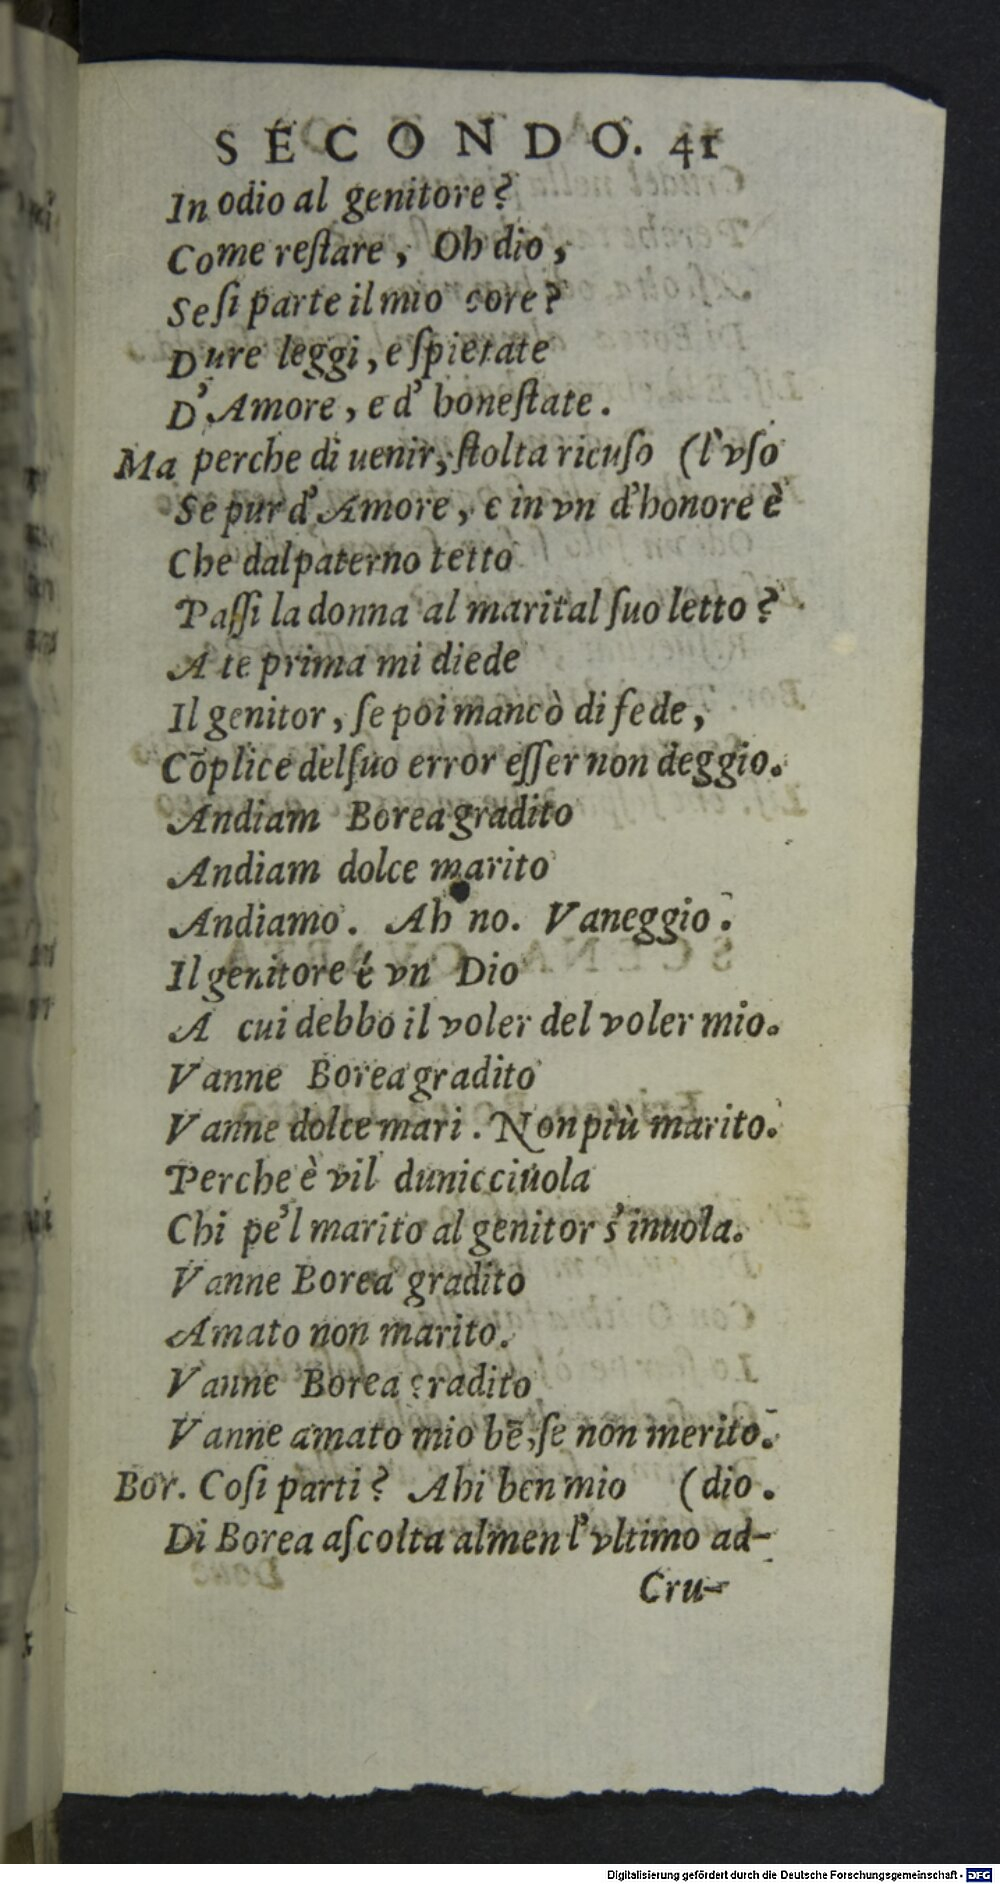 SECONDO. 41
In odio al genitore?
Come reſtare, Oh dio,
Se ſi parte il mio core?
Dure leggi, e ſpietate
D'Amore, e d' honeſtate.
Ma perche di uenir, ſtolta ricuſo (l'vſo
Se pur d'Amore, e in vn d'honore è
Che dal paterno tetto
Paſſi la donna al marital ſuo letto?
A te prima mi diede
Il genitor, ſe poi mancò di fede,
Cōplice del ſuo error eſſer non deggio.
Andiam Borea gradito
Andiam dolce marito
Andiamo. Ah no. Vaneggio.
Il genitore é vn Dio
A cui debbo il voler del voler mio.
Vanne Borea gradito
Vanne dolce mari. Non più marito.
Perche è vil dunicciuola
Chi pe'l marito al genitor s'inuola.
Vanne Borea gradito
Amato non marito.
Vanne Borea gradito
Vanne amato mio bē, ſe non merito.
Bor. Coſi parti? Ahi ben mio (dio.
Di Borea aſcolta almen l'vltimo ad-
Cru-
Digitalisierung gefördert durch die Deutsche Forschungsgemeinschaft - DFG